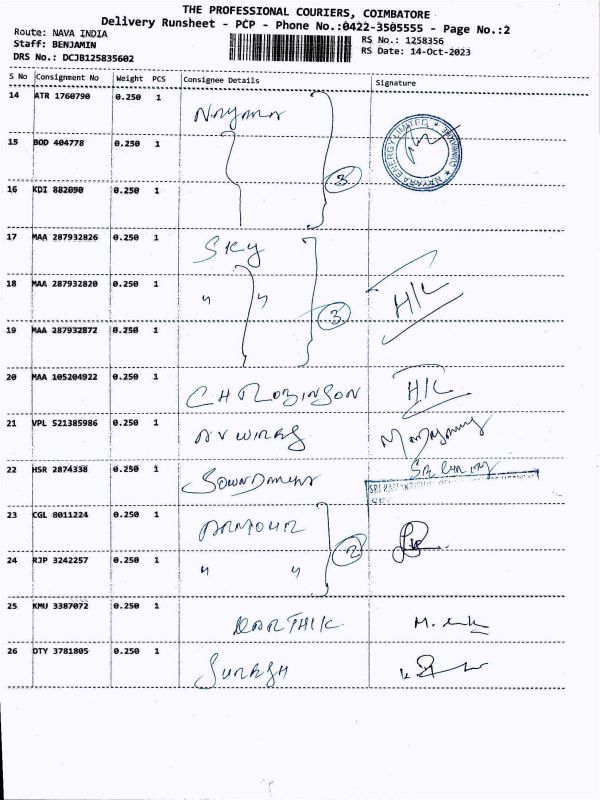 THE PROFESSIONAL COURIERS, COIMBATORE
Delivery Runsheet - PCP - Phone No.:0422-3505555 - Page No.:2
Route: NAVA INDIA
Staff: BENJAMIN
DRS No.: DCJB125835602
RS No.: 1258356
RS Date: 14-Oct-2023
S No Consignment No Weight PCS Consignee Details Signature
14 ATR 1760790 0.250 1 Nayara
15 BOD 404778 0.250 1
3
NAYARA ENERGY LIMITED
16 KDI 882090 0.250 1
17 MAA 287932826 0.250 1 SKY
18 MAA 287932820 0.250 1 " " H/L
3
19 MAA 287932872 0.250 1
20 MAA 105204922 0.250 1 CH ROBINSON H/L
21 VPL 521385986 0.250 1 AV WINGS
22 HSR 2874338 0.250 1
23 CGL 8011224 0.250 1 ARMOUR
2
24 RJP 3242257 0.250 1 " "
25 KMU 3387072 0.250 1 KARTHIK
26 OTY 3781805 0.250 1 SURESH